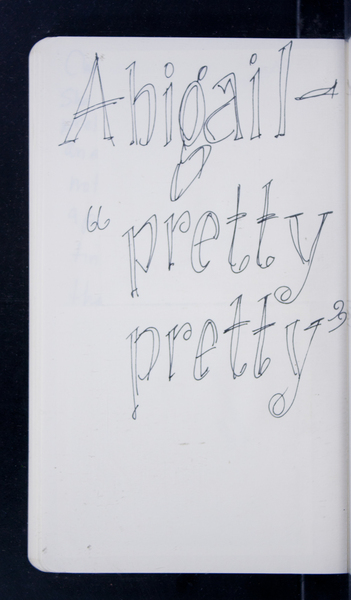 Abigail-
“pretty
pretty”